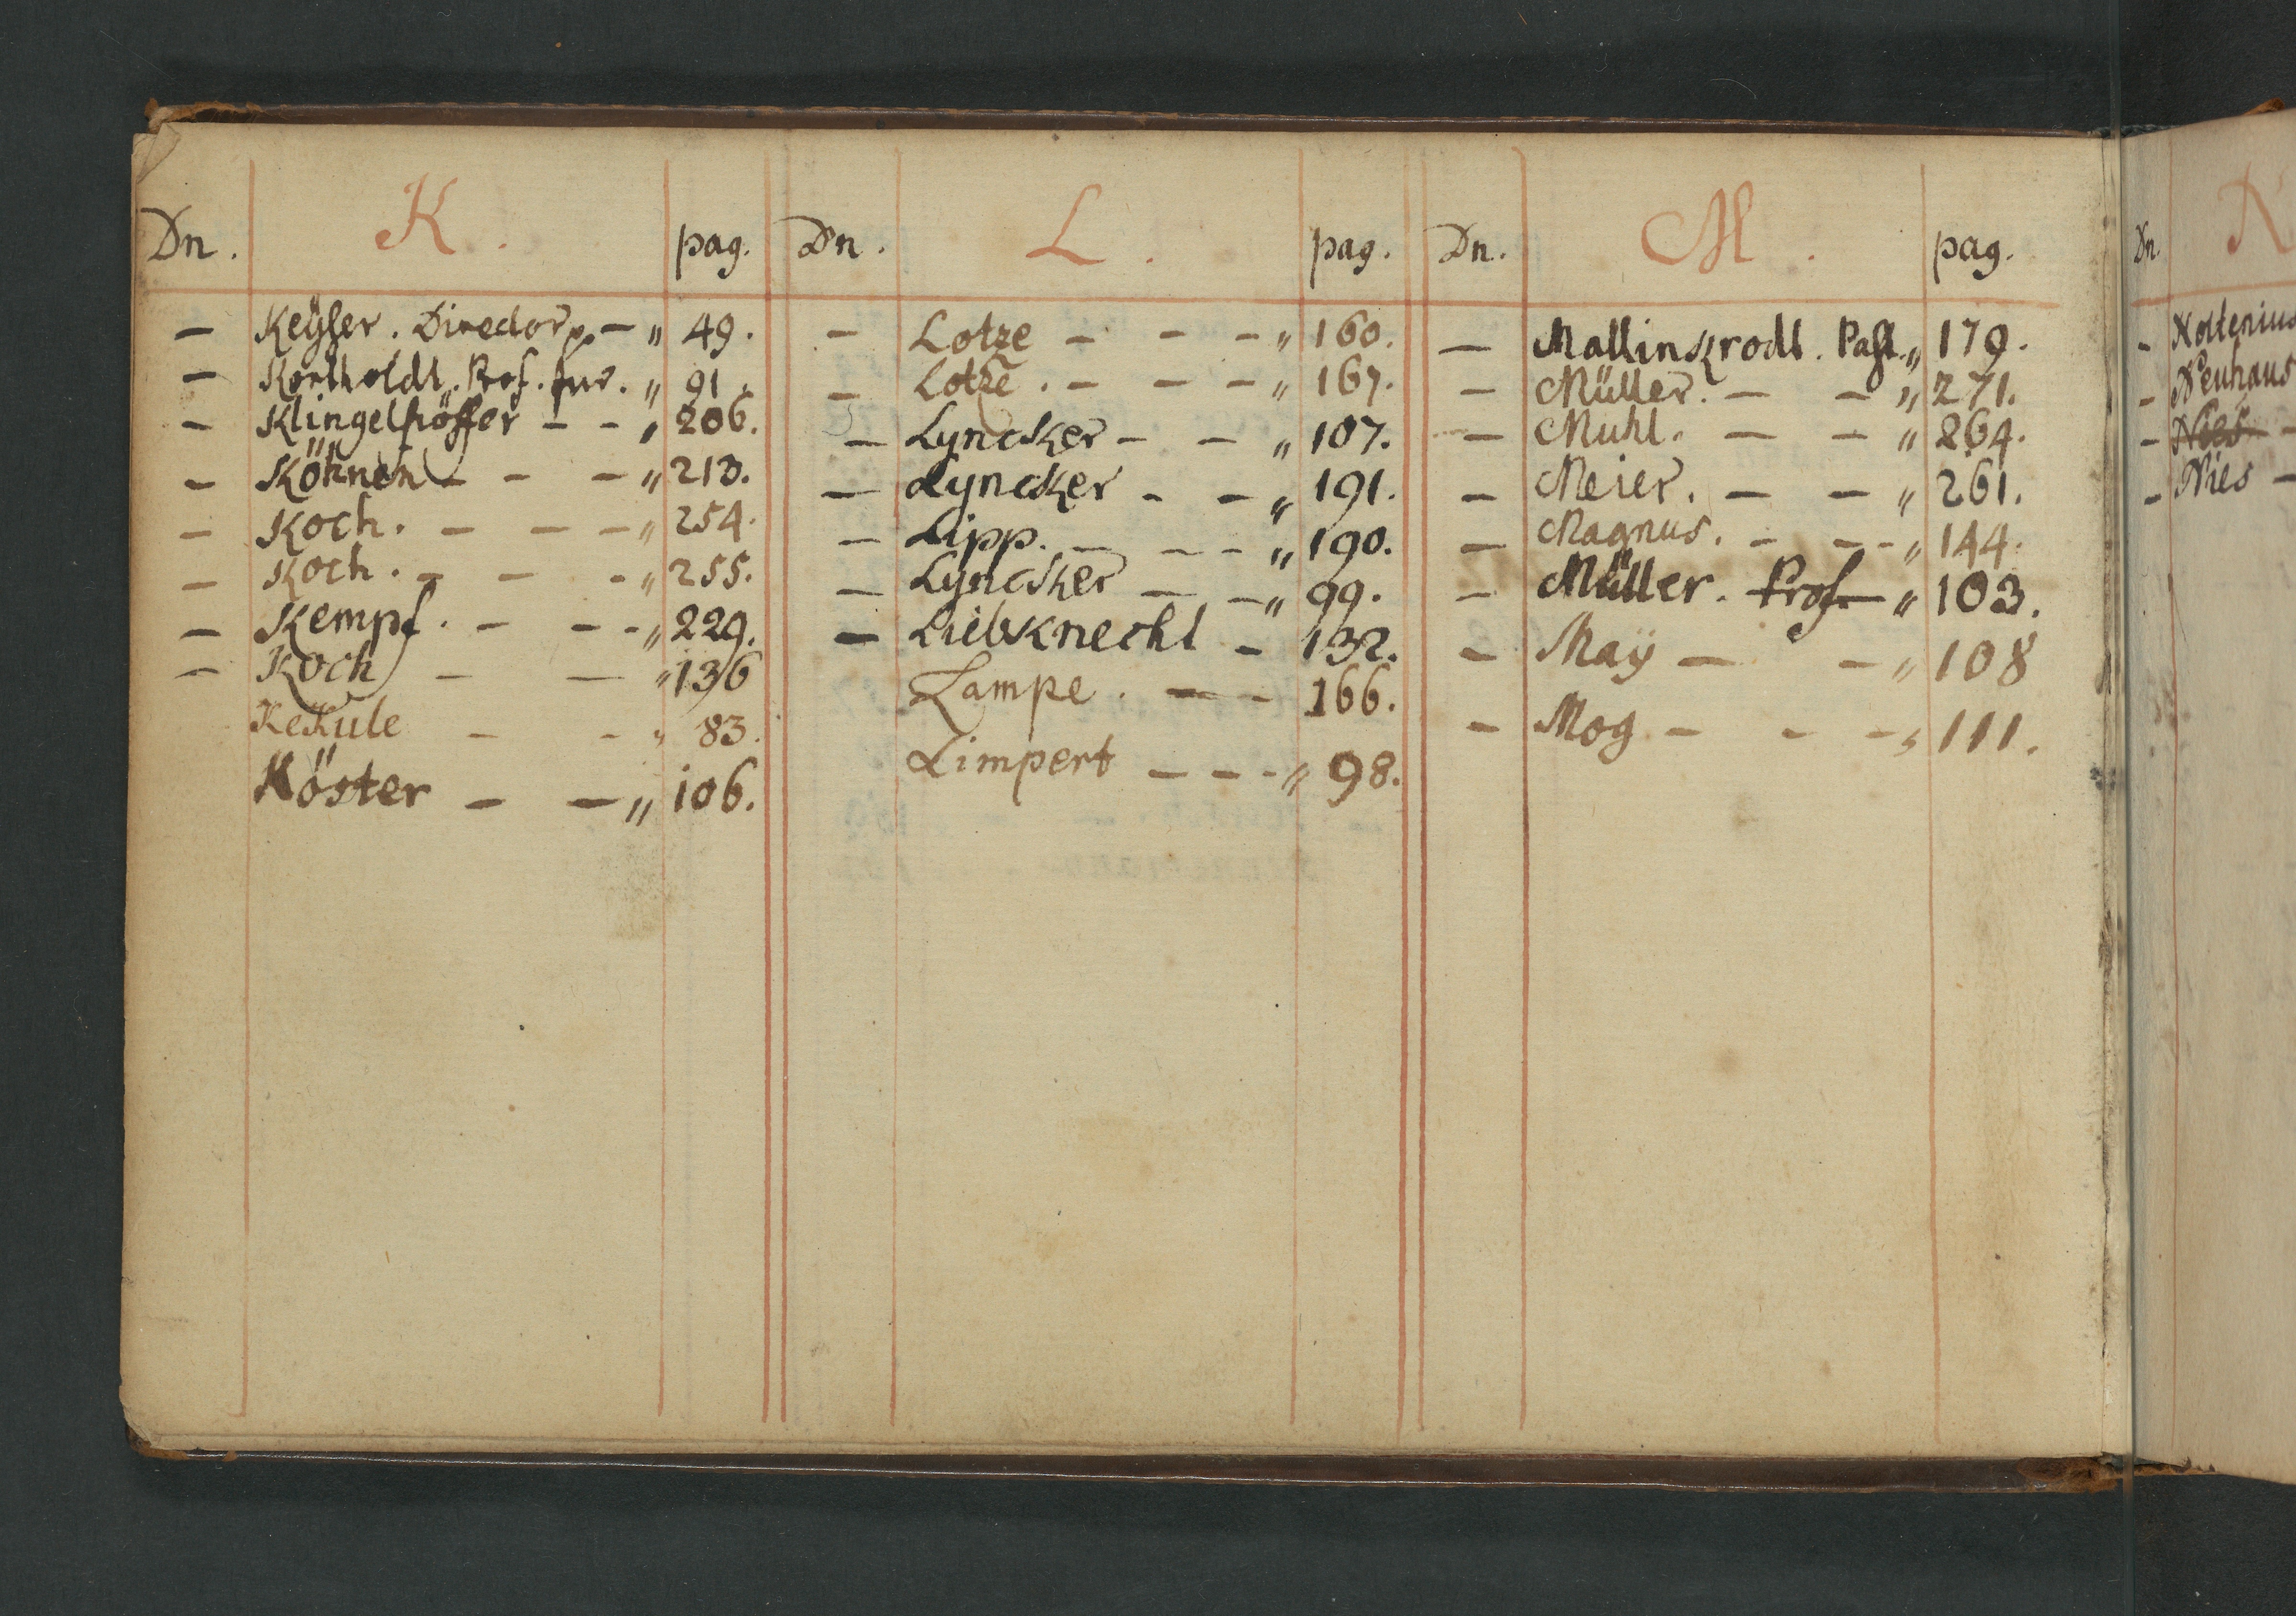 Dn. K. pag.
– Keyser. Director p. – „ 49.
– Kortholdt. Prof. jur. „ 91.
– Klingelhöffer – – „ 206.
– Köhnen – – – „ 213.
– Koch. – – – „ 254.
– Koch. – – – „ 255.
– Kempf. – – – „ 229.
– Koch – – „ 136
Kekule – – „ 83.
Köster – – „ 106.
Dn. L. pag.
– Lotze – – – „ 160.
– Lotze. – – – „ 167.
– Lyncker – – „ 107.
– Lyncker – – „ 191.
– Lipp. – – – „ 190.
– Lyncker – – „ 99.
– Liebknecht – 132.
Lampe. – – 166.
Limpert – – – „ 98.
Dn. M. pag.
– Mallinkrodt. Past. „ 179.
– Müller. – – „ 271.
– Muhl. – – „ 264.
– Meier. – – „ 261.
– Magnus. – – – „ 144.
– Müller. Prof. „ 103.
– Maÿ – – „ 108
– Mog – – – „ 111.
Dn. N
– Noltenius
– Neuhaus
– Nies –
– Nies –